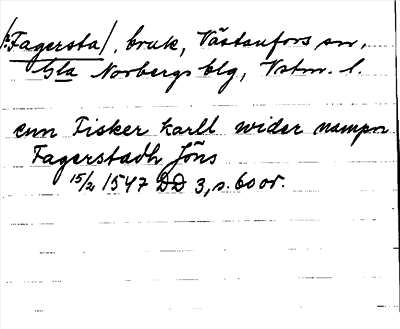 /:Fagersta/, bruk, Västanfors sn,
Gla Norbergs blg, Vstm. l.
enn Fisker karll wider nampn
Fagerstadh Jöns
15/2 1547 DD 3, s. 60 or.